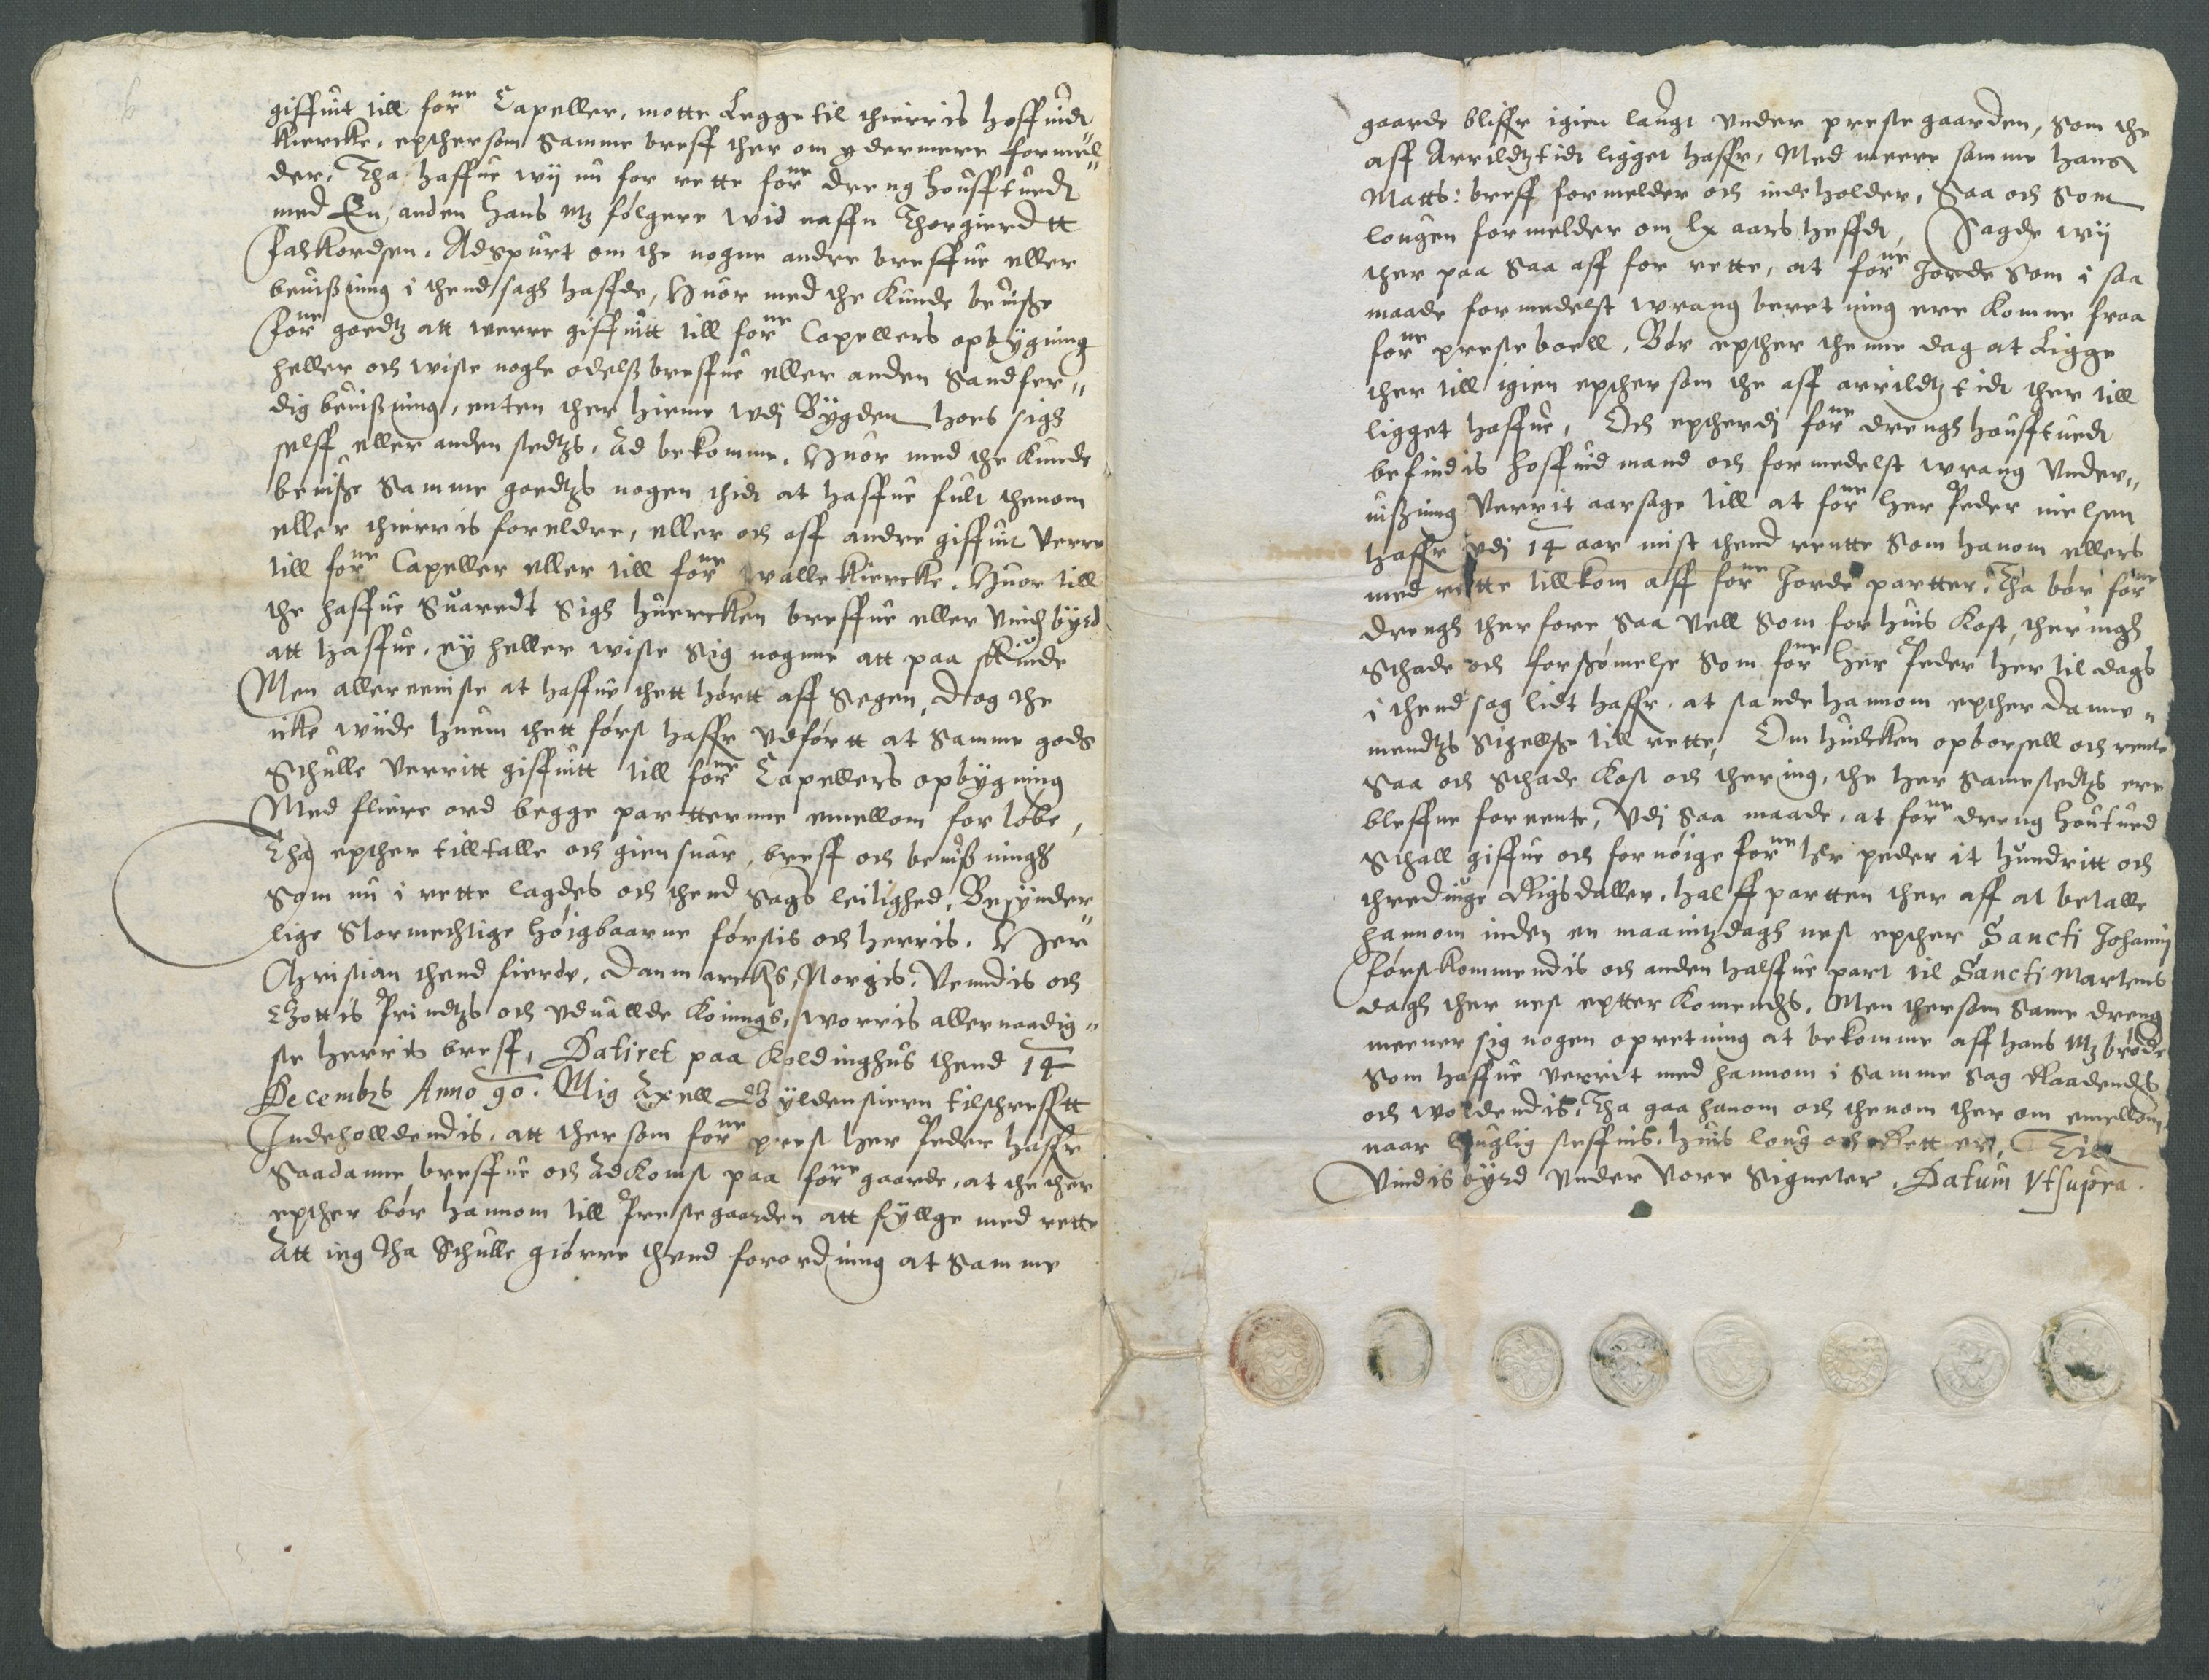 giffuit till forne Capeller, motte Legge til thierris hoffuidt
kiercke, epthersom Samme breff ther om ydermere formel„
der, Tha haffue wij nu for rette forne dreng houfftuedt
med En anden hans m; følgere wid naffn Thorgierdtt
Falkordsen. Adspurt om the nogne andre breffue eller
beuissning i thend sagh haffde, Huor med the kunde beuisse
forne goedtz att werre giffuitt till forne Capellers opbygning
heller och wiste nogle odelss breffue eller anden Sandfer„
dig beuissning, enten ther hieme wdj Bygden hoes sigh
selff eller anden stedtzs, Ad bekomme, Huor med the kunde
beuisse Samme goedtzs nogen thidt at haffue fult thenom
eller thierris foreldre, eller och aff andre giffuit verre
till forne Capeller eller till forne Walle kiercke. Huor till
the haffue Suaredt Sigh huercken breffue eller vindisbyrd
att haffue, ey heller wiste Sig nogenn att paa skiude
Men allereeniste at haffue thett hørtt aff Segen, dog the
icke wiide huem thett først haffr vdførtt at Samme gods
Schulle verritt giffuitt till forne Capellers opbygning
Med fliere ord begge partterne emellom forløbe,
Tha epther tilltalle och giensuar, breff och beuissningh
Som nu i rette lagdes och thend Sags leilighed, Besynder„
lige Stormechtige høigbaarne førstis och herris. Her
Christian thend fierde, Danmarcks, Norgis, Vendis och
Gottis Prindtzs och vduallde koinings, worris allernaadig„
ste herris breff, Datiret paa koldinghus thend 14
Decembzs Anno 90. Mig Axell Gyldenstiern tilschrefftt
Indeholldendis, att thersom forne prest her Peder haffr
Saadanne breffue och Adkomst paa forne gaarde, at the ther
epther bør hannom till Prestegaarden att fyllge med rette
Att ieg tha Schulle giørre thend forordning at Samme
gaarde bliffr igien laugt vnder prestegaarden, Som the
aff Arrildtz tidt ligget haffr, Med meere samme hans
Matts: breff formelder och indeholder, Saa och Som
lougen formelder om lx aars heffdt, Sagde wij
ther paa Saa aff for rette, at forne Jorde Som i saa
maade formedelst wrang beretning ere komne fraa
forne presteboell, Bør epther thenne dag at Ligge
ther till igien epthersom the aff arrildtz tidt ther till
ligget haffue, Och eptherdj forne drengh houfftuedt
befindis hoffuid mand och formedelst wrang vnder„
uissning verrit aarsage till at forne her Peder nielsen
haffr vdj 14 aar mist thend rentte Som hanom ellers
med rette tillkom aff forne Jorde partter, Tha bør forne
drengh therfore Saa vell Som for huis kost, theringh
Schade och forssømelse Som forne her Peder her til dags
i thend sag lidt haffr, at stande hannom epther danne„
mendtzs Sigellsse till rette, Om huilcken opborsell och rente
Saa och Schade kost och thering, the her Samestedtzs ere
bleffne foreente, Vdj Saa maade, at forne dreng houtued
Schall giffue och fornøige forne her peder it hundritt och
thrediuge Rigsdaller, halffpartten ther aff at betalle
hannom inden en maaintz dagh nest epther Sancti Johannj
førstkommendis och anden halffue part til Sancti Martens
dagh ther nest eptter komendhs. Men thersom Same dreng
meener sig nogen opretning at bekomme aff hans m; brødr
Som haffue verrit med hannom i Samme Sag Raadendhs
och woldendis, Tha gaa hanom och thenom ther om emellom
naar lauglig steffnis, huis loug och Rett er, Till
Vindisbyrd vnder vore Signeter. Datum Vtsupra.